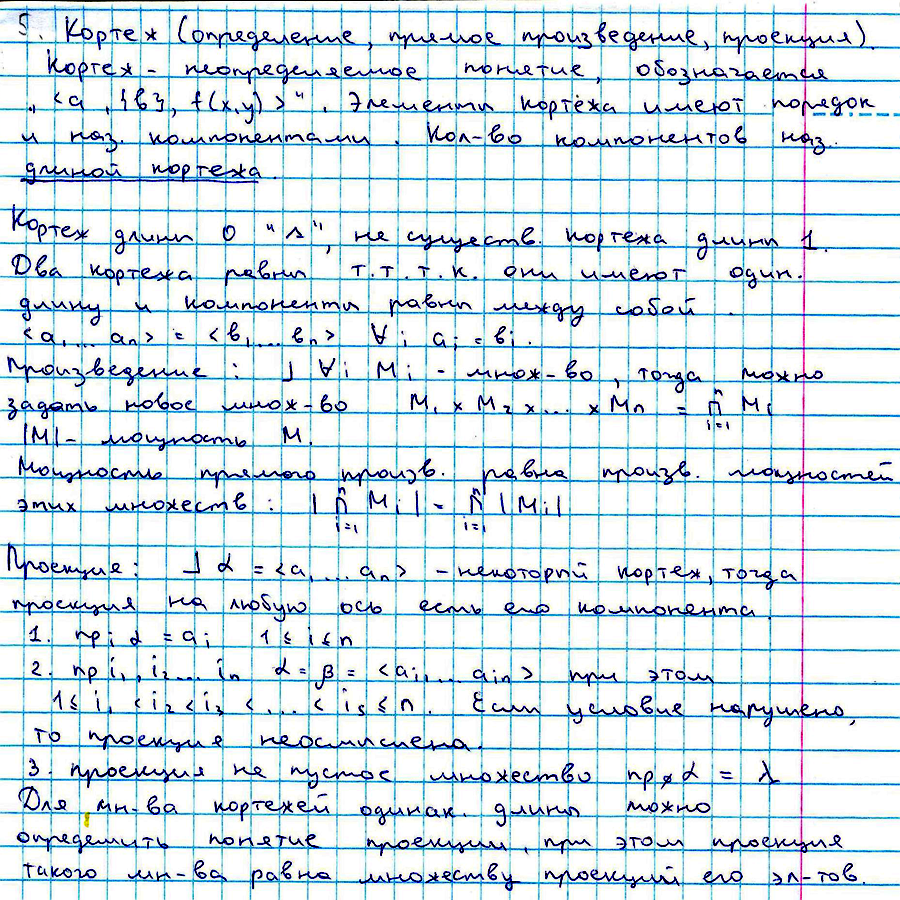 5. Кортеж (определение, прямое произведение, проекция).
Кортеж - неопределяемое понятие, обозначается
„ <a, {b}, f(x,y)>". Элементы кортежа имеют порядок
и наз. компонентами. Кол-во компонентов наз.
длиной кортежа.
Кортеж длины 0 "Λ", не существ. кортежа длины 1.
Два кортежа равны т.т.т.к. они имеют один.
длину и компоненты равны между собой.
<a₁...aₙ> = <b₁...bₙ> ∀i aᵢ = bᵢ.
Произведение: ⅃ ∀i Mᵢ - множ-во, тогда можно
задать новое множ-во M₁ × M₂ × ... × Mₙ = ∏ⁿᵢ₌₁ Mᵢ
|M| - мощность M.
Мощность прямого произв. равна произв. мощностей
этих множеств: |∏ⁿᵢ₌₁ Mᵢ| = ∏ⁿᵢ₌₁ |Mᵢ|
Проекция: ⅃ α = <a₁...aₙ> - некоторый кортеж, тогда
проекция на любую ось есть его компонента
1. прᵢ α = aᵢ 1 ≤ i ≤ n
2. пр i₁, i₂... iₙ α = β = <aᵢ₁... aᵢₙ> при этом
1 ≤ i₁ < i₂ < i₃ < ... < iₛ ≤ n. Если условие нарушено,
то проекция неосмыслена.
3. проекция не пустое множество пр∅ α = λ
Для мн-ва кортежей одинак. длины можно
определить понятие проекции, при этом проекция
такого мн-ва равна множеству проекций его эл-тов.